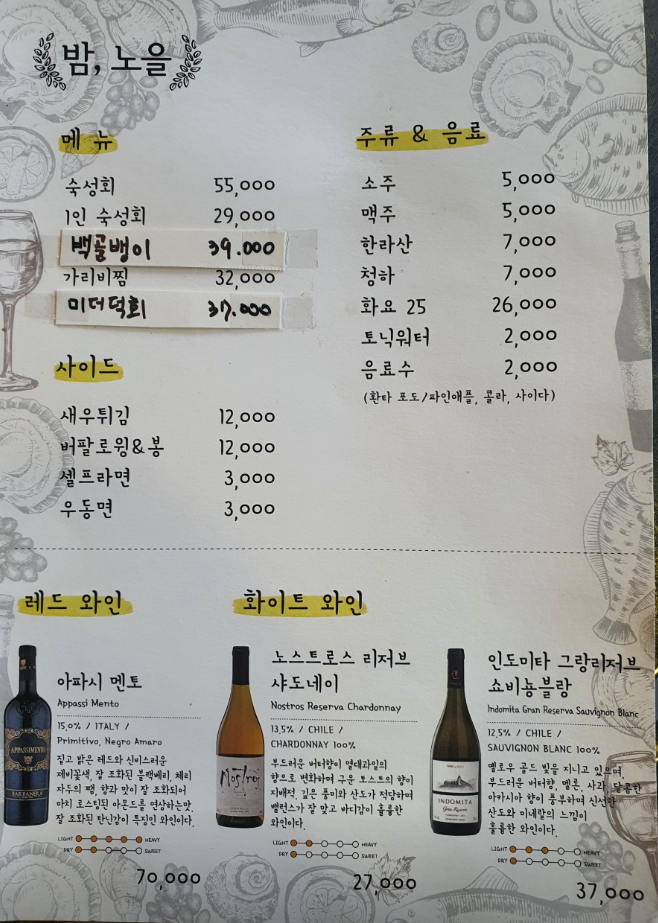 밤, 노을
메뉴
숙성회 55,000
1인 숙성회 29,000
백골뱅이 39.000
가리비찜 32,000
미더덕회 37.000
사이드
새우튀김 12,000
버팔로윙&봉 12,000
셀프라면 3,000
우동면 3,000
주류 & 음료
소주 5,000
맥주 5,000
한라산 7,000
청하 7,000
화요 25 26,000
토닉워터 2,000
음료수 2,000
(환타 포도/파인애플, 콜라, 사이다)
레드 와인
아파시 멘토
Appassi Mento
15,0% / ITALY /
Primitivo, Negro Amaro
짙고 밝은 레드와 신비스러운
제비꽃색, 잘 조화된 블랙베리, 체리
자두의 잼, 향과 맛이 잘 조화되어
마치 로스팅된 아몬드를 연상하는맛.
잘 조화된 탄닌감이 특징인 와인이다.
LIGHT HEAVY
DRY SWEET
70,000
APPASSIMENTO
BARBANERA
화이트 와인
노스트로스 리저브
샤도네이
Nostros Reserva Chardonnay
13,5% / CHILE /
CHARDONNAY 100%
부드러운 버터향이 열대과일의
향으로 변화하며 구운 토스트의 향이
지배적, 깊은 풍미와 산도가 적당하며
밸런스가 잘 맞고 바디감이 훌륭한
와인이다.
LIGHT HEAVY
DRY SWEET
27,000
Nostros
인도미타 그랑리저브
쇼비뇽블랑
Indomita Gran Reserva Sauvignon Blanc
12,5% / CHILE /
SAUVIGNON BLANC 100%
옐로우 골드 빛을 지니고 있으며,
부드러운 버터향, 멜론, 사과, 달콤한
아카시아 향이 풍부하며 신선한
산도와 미네랄의 느낌이
훌륭한 와인이다.
LIGHT HEAVY
DRY SWEET
37,000
INDOMITA
Gran Reserva